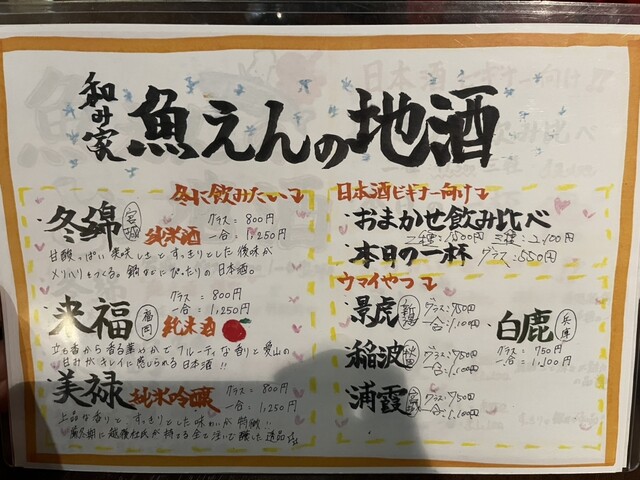 和み家 魚えんの地酒
冬に飲みたい
冬綿 宮城 純米酒
グラス=800円
一合=1,250円
甘酸っぱい美味しさとすっきりとした後味が
メリハリをつくる。鍋などにぴったりの日本酒。
来福 福岡 純米酒
グラス=800円
一合=1,250円
立ち香から香る華やかでフルーティな香りと愛山の
甘みがキレイに感じられる日本酒!!
美禄 純米吟醸
グラス=800円
一合=1,250円
上品な香りとすっきりとした味わいが特徴!!
厳冬期に越後杜氏が持てる全てを注いで醸した逸品
日本酒ビギナー向け
・おまかせ飲み比べ
二種:1,500円 三種:2,100円
・本日の一杯 グラス:550円
ウマイやつ
・景虎 新潟 グラス:750円
一合:1,100円
・稲波 秋田 グラス:750円
一合:1,100円
・浦霞 宮城 グラス:750円
一合:1,100円
・白鹿 兵庫
グラス=750円
一合=1,100円